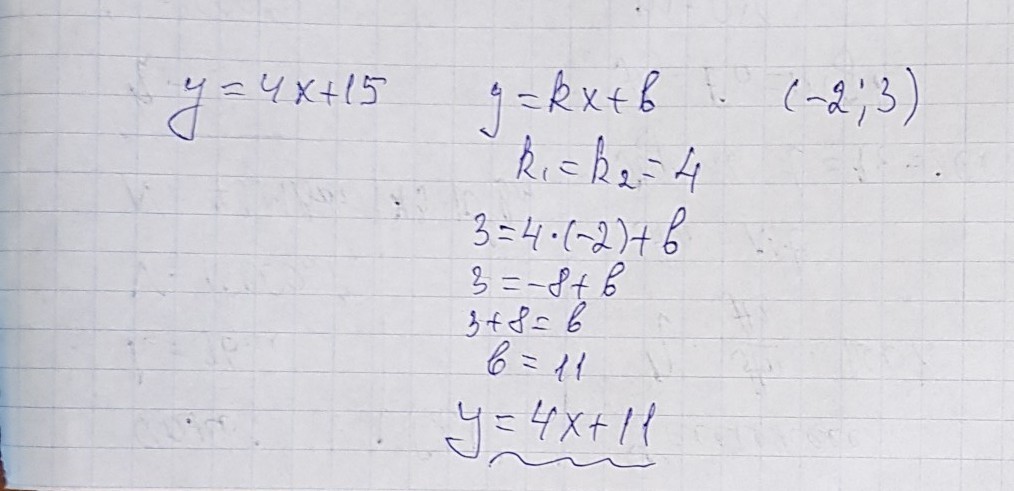 y = 4x+15 y = kx + b (-2; 3)
k₁ = k₂ = 4
3 = 4·(-2) + b
3 = -8 + b
3+8 = b
b = 11
y = 4x+11